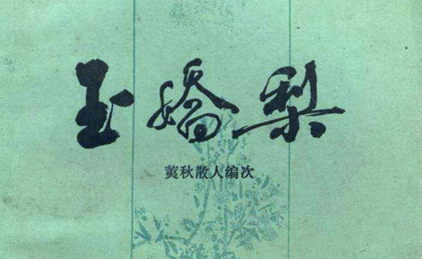 玉嬌梨
荑秋散人编次